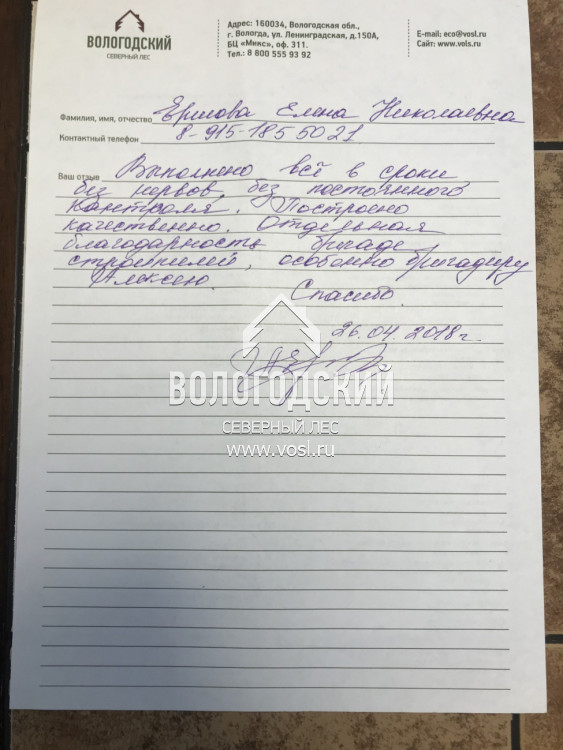 ВОЛОГОДСКИЙ
СЕВЕРНЫЙ ЛЕС
Адрес: 160034, Вологодская обл.,
г. Вологда, ул. Ленинградская, д.150А,
БЦ «Микс», оф. 311.
Тел.: 8 800 555 93 92
E-mail: eco@vosl.ru
Сайт: www.vols.ru
Фамилия, имя, отчество Ершова Елена Николаевна
Контактный телефон 8-915-185 50 21
Ваш отзыв Выполнено всё в сроки
без нервов, без постоянного
контроля. Построено
качественно. Отдельная
благодарность бригаде
строителей, особенно бригадиру
Алексею.
Спасибо.
26.04.2018г.
ВОЛОГОДСКИЙ
СЕВЕРНЫЙ ЛЕС
www.vosl.ru